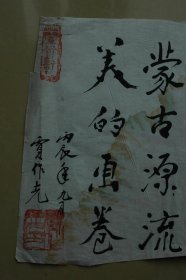 蒙古源流
美的画卷
丙辰年九月
贾作光